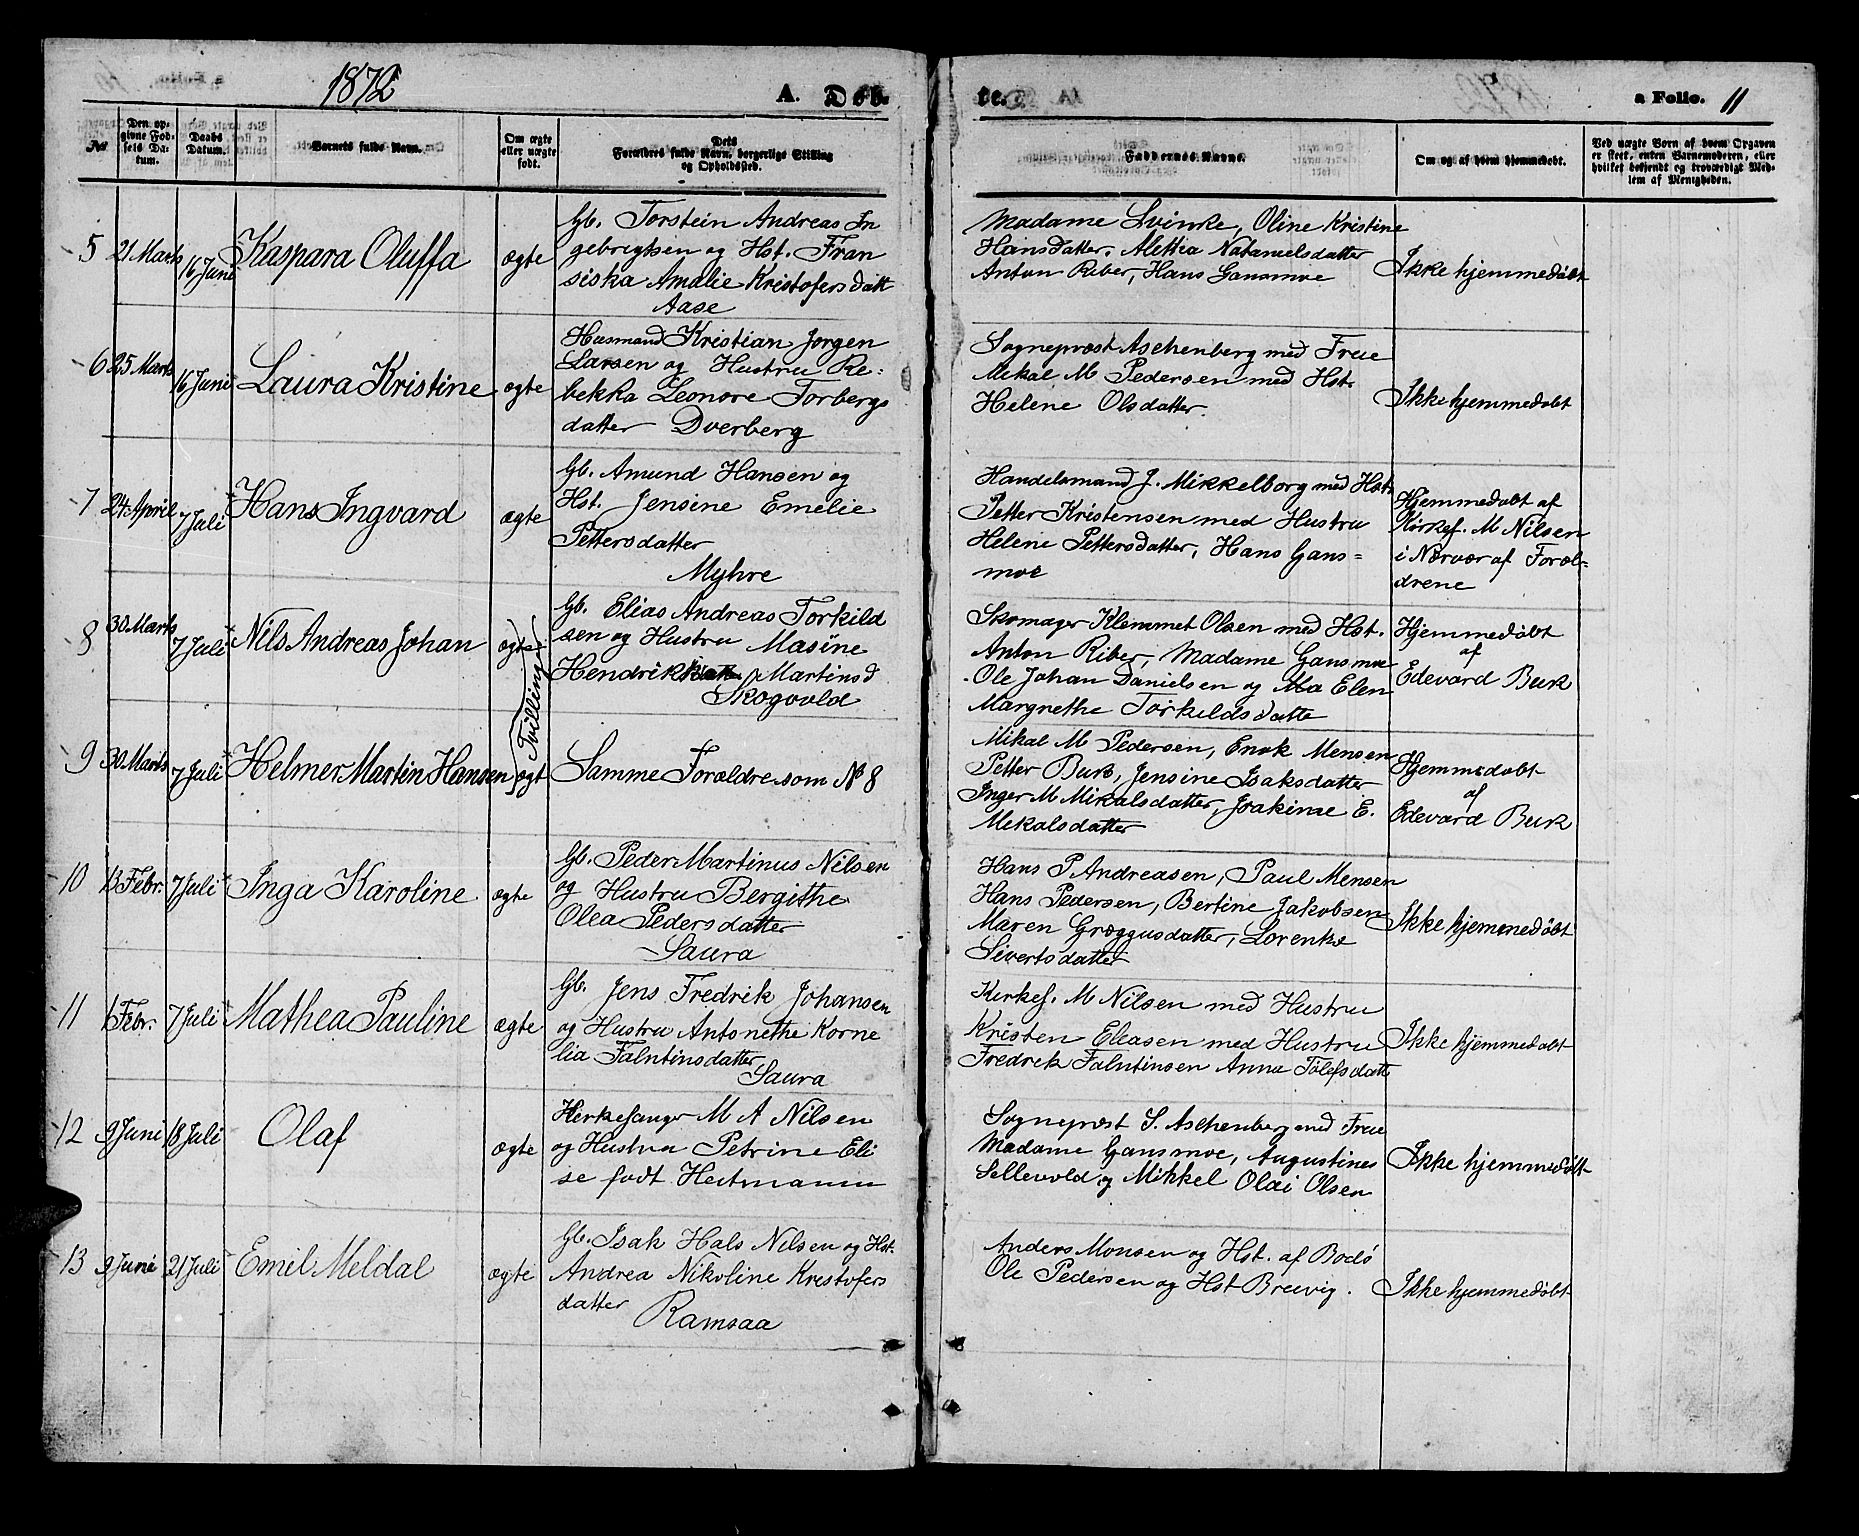 1872
A. Døb-
te.
a Folio. 11
No.
Den opgivne Fødsels Datum.
Daabs Datum.
Barnets fulde Navn.
Om ægte eller uægte født.
Dets Forældres fulde Navn, borgerlige Stilling og Opholdssted.
Faddernes Navne.
Om og af hvem hjemmedøbt.
Ved uægte Børn af hvem Opgaven er skeet, enten Barnemoderen, eller hvilket bekjendt og troværdigt Medlem af Menigheden.
5 21 Marts 16 Juni Kaspara Oluffa ægte
Gb. Torstein Andreas In
gebrigtsen og Hst. Fran
siska Amalie Kristofersdatt
Aase
Madame Svinke, Oline Kristine
Hansdatter, Alettea Natanielsdatter
Anton Riber, Hans Gansmoe
Ikke hjemmedøbt
6 25 Marts 16 Juni Laura Kristine ægte
Husmand Kristian Jørgen
Larsen og Hustru Re:
bekka Leonore Torbergs
datter Dverberg
Sogneprest Aschenberg med Frue
Mikal M Pedersen med Hst.
Helene Olsdatter.
Ikke hjemmedøbt
7 24 April 7 Juli Hans Ingvard ægte
Gb. Amund Hansen og
Hst. Jensine Emelie
Pettersdatter
Myhre
Handelsmand J. Mikkelborg med Hst.
Petter Kristensen med Hustru
Helene Pettersdatter, Hans Gans=
moe
Hjemmedøbt af
Kirkes. M Nilsen
i Nærvær af Foræl-
drene
8 30 Marts 7 Juli Nils Andreas Johan ægte
Tvilling
Gb. Elias Andreas Torkild
sen og Hustru Masine
Hendrikke Martinsd
Skogvold
Skomager Klemmet Olsen med Hst.
Anton Riber, Madame Gansmoe
Ole Johan Danielsen og Ma Elen
Margrethe Torkildsdatte
Hjemmedøbt
af
Edevard Buk
9 30 Marts 7 Juli Helmer Martin Hansen ægt
Samme Forældre som No 8
Mikal M Pedersen, Enok Mensen
Petter Buk, Jensine Isaksdatter
Inger M Mikalsdatter, Joakime E.
Mekalsdatter
Hjemmedøbt
af
Edevard Buk
10 13 Febr. 7 Juli Inga Karoline ægte
Gb. Peder Martinus Nilsen
og Hustru Bergithe
Olea Pedersdatter
Saura
Hans P Andreasen, Paul Mensen
Hans Pedersen, Bertine Jakobsen
Maren Græggusdatter, Lorentse
Sivertsdatter
Ikke hjemmedøbt
11 1 Febr. 7 Juli Mathea Pauline ægte
Gb. Jens Fredrik Johansen
og Hustru Antonethe Korne
lia Falntinsdatter
Saura
Kerkes. M Nilsen med Hustru
Kristen Eleasen med Hustru
Fredrek Falntinsen Anne Tølefsdatt
Ikke hjemmedøbt
12 9 Juni 18 Juli Olaf ægte
Kerkesanger M A Nilsen
og Hustru Petrine Eli
se født Heitmann
Sogneprest S. Aschenberg med Frue
Madame Gansmoe, Augustines
Sellevold og Mikkel Olai Olsen
Ikke hjemmedøbt
13 9 Juni 21 Juli Emil Meldal ægte
Gb. Isak Hals Nilsen og Hst.
Andrea Nikoline Krestofers
datter
Ramsaa
Anders Monsen og Hst. af Bodø
Ole Pedersen og Hst Breivig.
Ikke hjemmedøbt